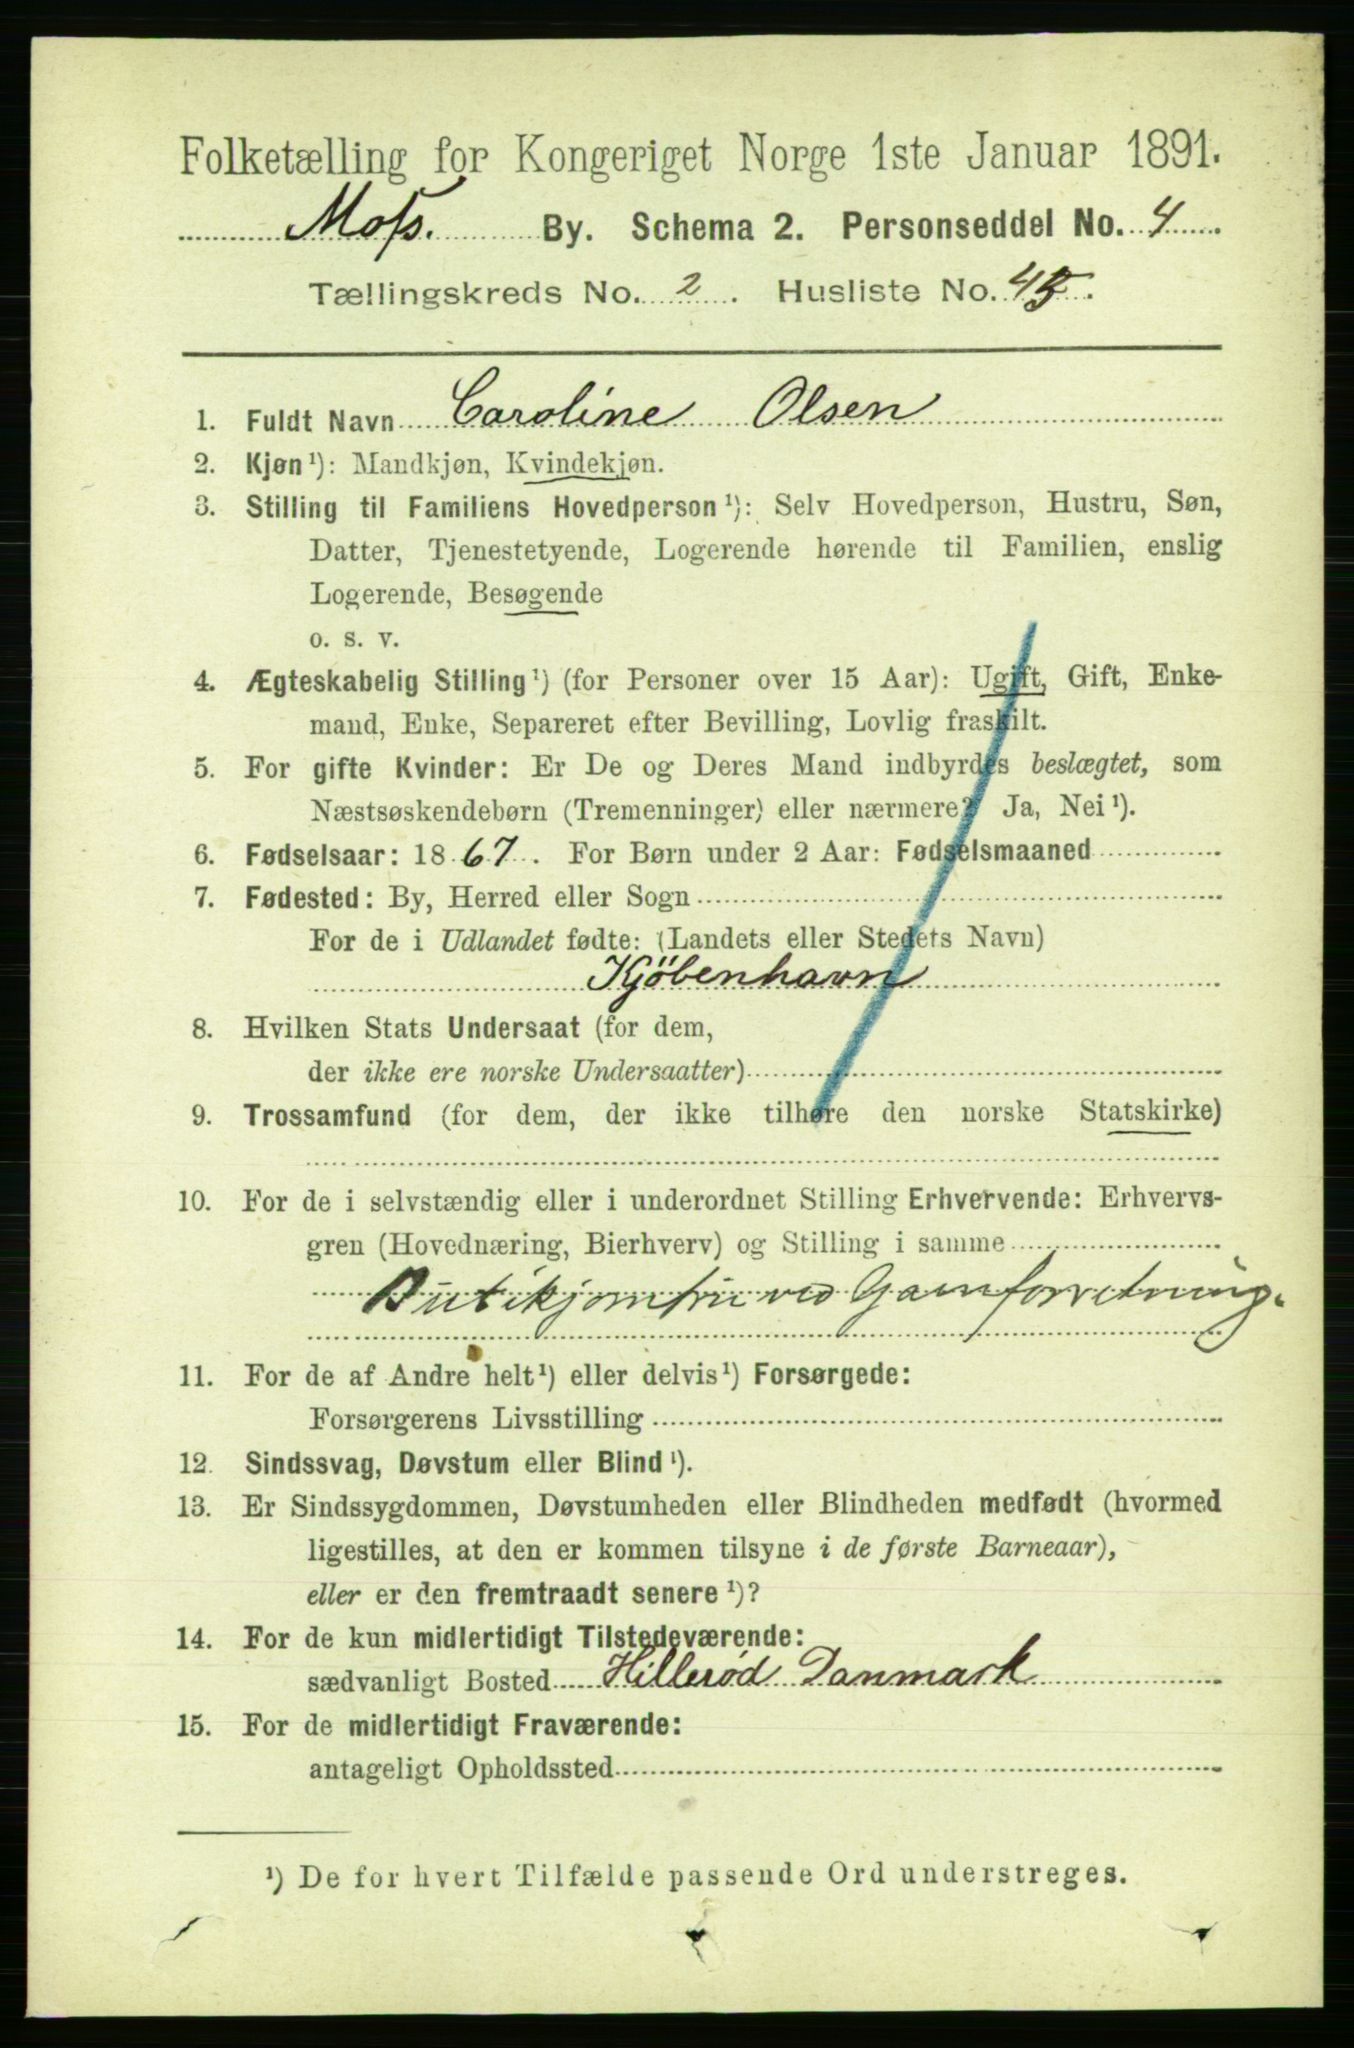 Folketælling for Kongeriget Norge 1ste Januar 1891.
Moss. By. Schema 2. Personseddel No. 4
Tællingskreds No. 2. Husliste No. 45.
1. Fuldt Navn Caroline Olsen
2. Kjøn¹): Mandkjøn, Kvindekjøn.
3. Stilling til Familiens Hovedperson¹): Selv Hovedperson, Hustru, Søn,
Datter, Tjenestetyende, Logerende hørende til Familien, enslig
Logerende, Besøgende
o. s. v.
4. Ægteskabelig Stilling¹) (for Personer over 15 Aar): Ugift, Gift, Enke-
mand, Enke, Separeret efter Bevilling, Lovlig fraskilt.
5. For gifte Kvinder: Er De og Deres Mand indbyrdes beslægtet, som
Næstsøskendebørn (Tremenninger) eller nærmere? Ja, Nei¹).
6. Fødselsaar: 1867. For Børn under 2 Aar: Fødselsmaaned
7. Fødested: By, Herred eller Sogn
For de i Udlandet fødte: (Landets eller Stedets Navn)
Kjöbenhavn
8. Hvilken Stats Undersaat (for dem,
der ikke ere norske Undersaatter)
9. Trossamfund (for dem, der ikke tilhøre den norske Statskirke)
10. For de i selvstændig eller i underordnet Stilling Erhvervende: Erhvervs-
gren (Hovednæring, Bierhverv) og Stilling i samme
Butikjomfru ved Garnforretning.
11. For de af Andre helt¹) eller delvis¹) Forsørgede:
Forsørgerens Livsstilling
12. Sindssvag, Døvstum eller Blind¹).
13. Er Sindssygdommen, Døvstumheden eller Blindheden medfødt (hvormed
ligestilles, at den er kommen tilsyne i de første Barneaar),
eller er den fremtraadt senere¹)?
14. For de kun midlertidigt Tilstedeværende:
sædvanligt Bosted Hillerød Danmark
15. For de midlertidigt Fraværende:
antageligt Opholdssted
¹) De for hvert Tilfælde passende Ord understreges.